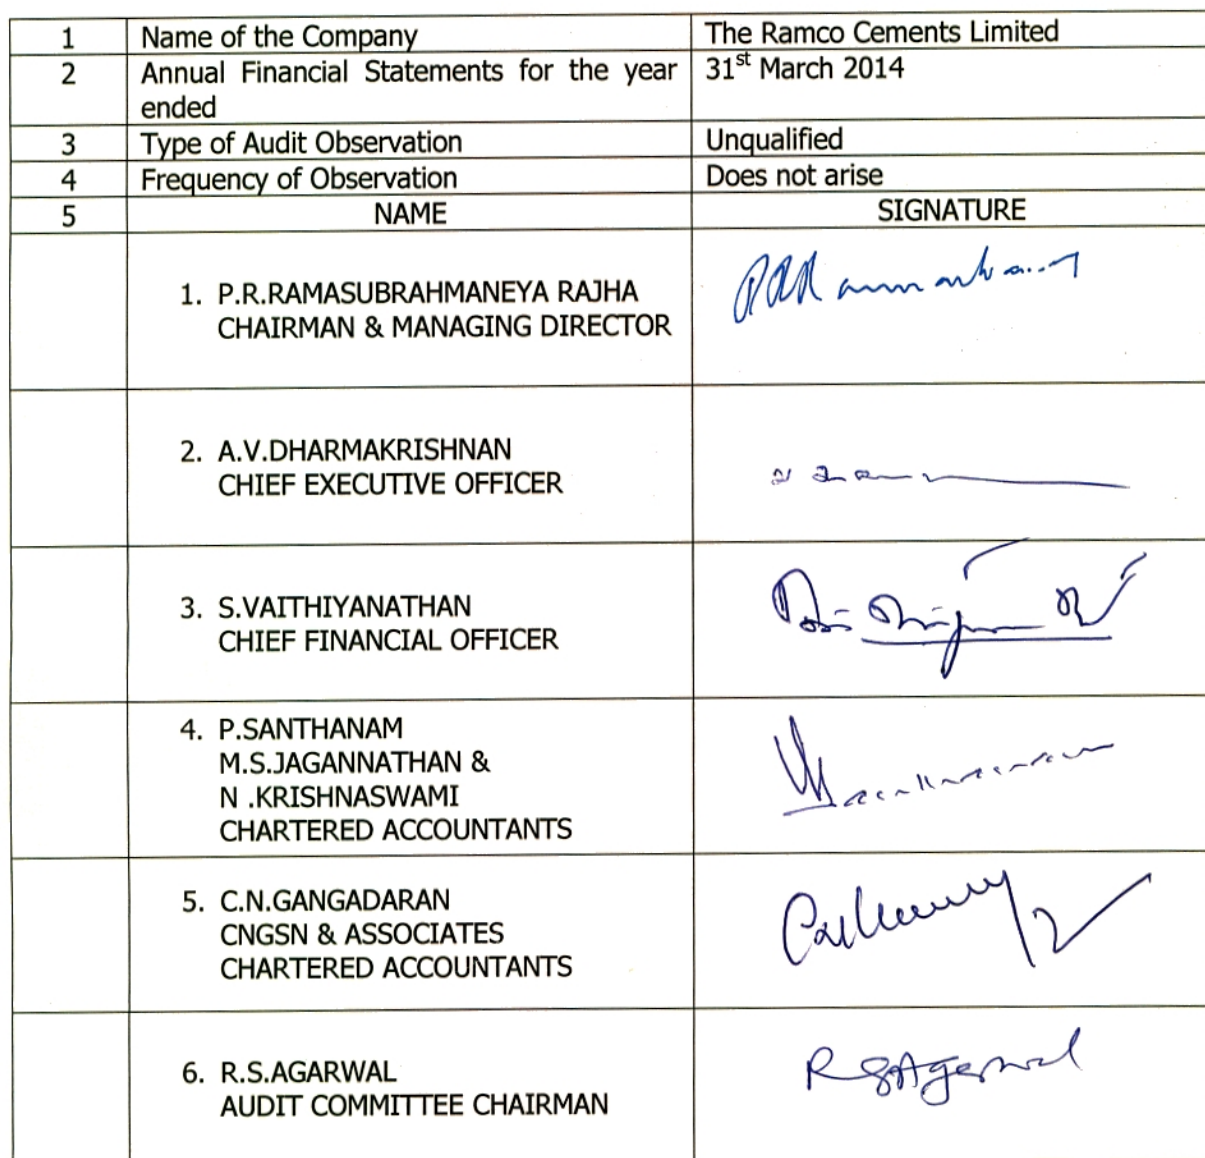 1 Name of the Company The Ramco Cements Limited
2 Annual Financial Statements for the year 31st March 2014
ended
3 Type of Audit Observation Unqualified
4 Frequency of Observation Does not arise
5 NAME SIGNATURE
1. P.R.RAMASUBRAHMANEYA RAJHA
CHAIRMAN & MANAGING DIRECTOR
2. A.V.DHARMAKRISHNAN
CHIEF EXECUTIVE OFFICER
3. S.VAITHIYANATHAN
CHIEF FINANCIAL OFFICER
4. P.SANTHANAM
M.S.JAGANNATHAN &
N .KRISHNASWAMI
CHARTERED ACCOUNTANTS
5. C.N.GANGADARAN
CNGSN & ASSOCIATES
CHARTERED ACCOUNTANTS
6. R.S.AGARWAL
AUDIT COMMITTEE CHAIRMAN
R S Agarwal